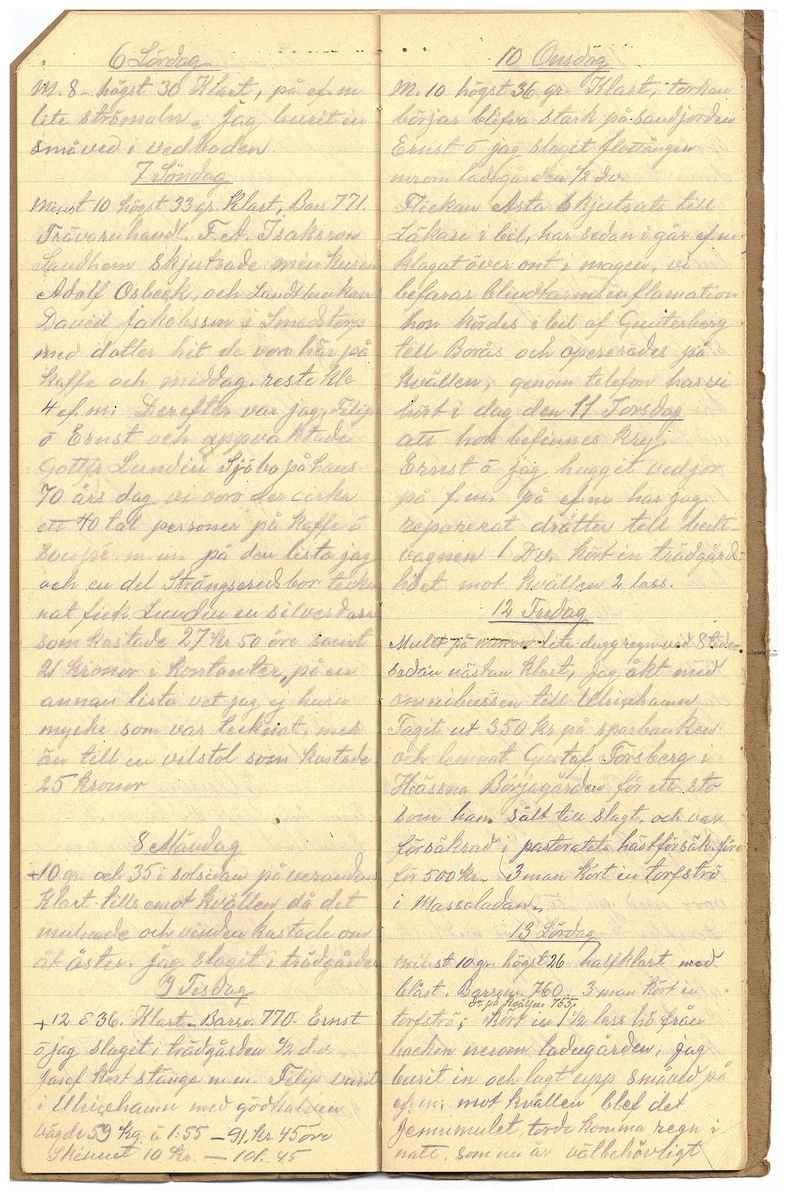 6 Lördag
M. 8 - högst 30 Klart, på ef.m
lite strömoln. Jag burit in
småved i vedboden
7 Söndag
Minst 10 högst 33 gr. Klart, Baro 771.
Trävaruhandl. F. A. Isaksson
Sandhem skjutsade min kusin
Adolf Osbeck, och Landtbrukare
David Jakobsson i Smedstorp
med dotter hit de voro här på
kaffe och middag, reste kl.
4 ef.m; Derefter var jag, Filip
ö Ernst och uppvaktade
Gottfr Lundin Sjöbo på hans
70 års dag vi voro der cirka
ett 40 tal personer på kaffe ö
soupé m.m. på den lista jag
och en del Strängseredsbor teck-
nat fick Lundin en silver
som kostade 27 kr 50 öre samt
21 kronor i kontanter, på en
annan lista vet jag ej huru
mycke som var tecknat, men
än till en vilstol som kostade
25 kronor
8 Måndag
+10 gr och 35 i solsidan på verandan
Klart tills emot kvällen då det
mulnade och vinden kastade om
åt öster. Jag slagit i trädgården
9 Tisdag
+12 ö 36. Klart. Baro. 770. Ernst
ö jag slagit i trädgården 1/2 d.v.
Josef kört stänge m.m. Filip varit
i Ulricehamn med gödkalven
vägde 59 kg. à 1:55 - 91 kr 45 öre
Skinnet 10 kr. - 101.45
10 Onsdag
M. 10 högst 36 gr. Klart, torkan
börjar blifva stark på sandjorden
Ernst ö jag slagit flottängen
nerom ladugården 1/2 dv.
Flickan Asta skjutsats till
Läkare i bil, har sedan i går ef.m
klagat över ont i magen, vi
befaras blindtarmsinflamation
hon kördes i bil af
till Borås och opererades på
kvällen; genom telefon har vi
hört i dag den 11 Torsdag
att hon befinnes kry;
Ernst ö jag huggit vedjör
på f.m. På ef.m har jag
reparerat drätter till hult-
vagnen 1 Dv. Kört in trädgårds-
höet mot kvällen 2 lass.
12 Fredag
Mulet på lite duggregn ved 8 tiden
sedan nästan klart, jag åkt med
omnibussen till Ulricehamn
Tagit ut 350 kr på sparbanken
och lemnat Gustaf Forsberg i
Hössna Börjagården för ett sto
som han sålt till slagt, och var
försäkrad i pastoratets hästförsäk.före
för 500 kr. 3 man kört in torfströ
i Massaladan.
13 Lördag
minst 10 gr. högst 26 halfklart med
blåst. Barom. 760. 3 man kört in
ö på kvällen 755,
torfströ; Kört in 1 1/2 lass hö från
backen nerom ladugården, Jag
burit in och lagt upp småved på
ef.m; mot kvällen blef det
jemnmulet, torde komma regn i
natt, som nu är välbehövligt